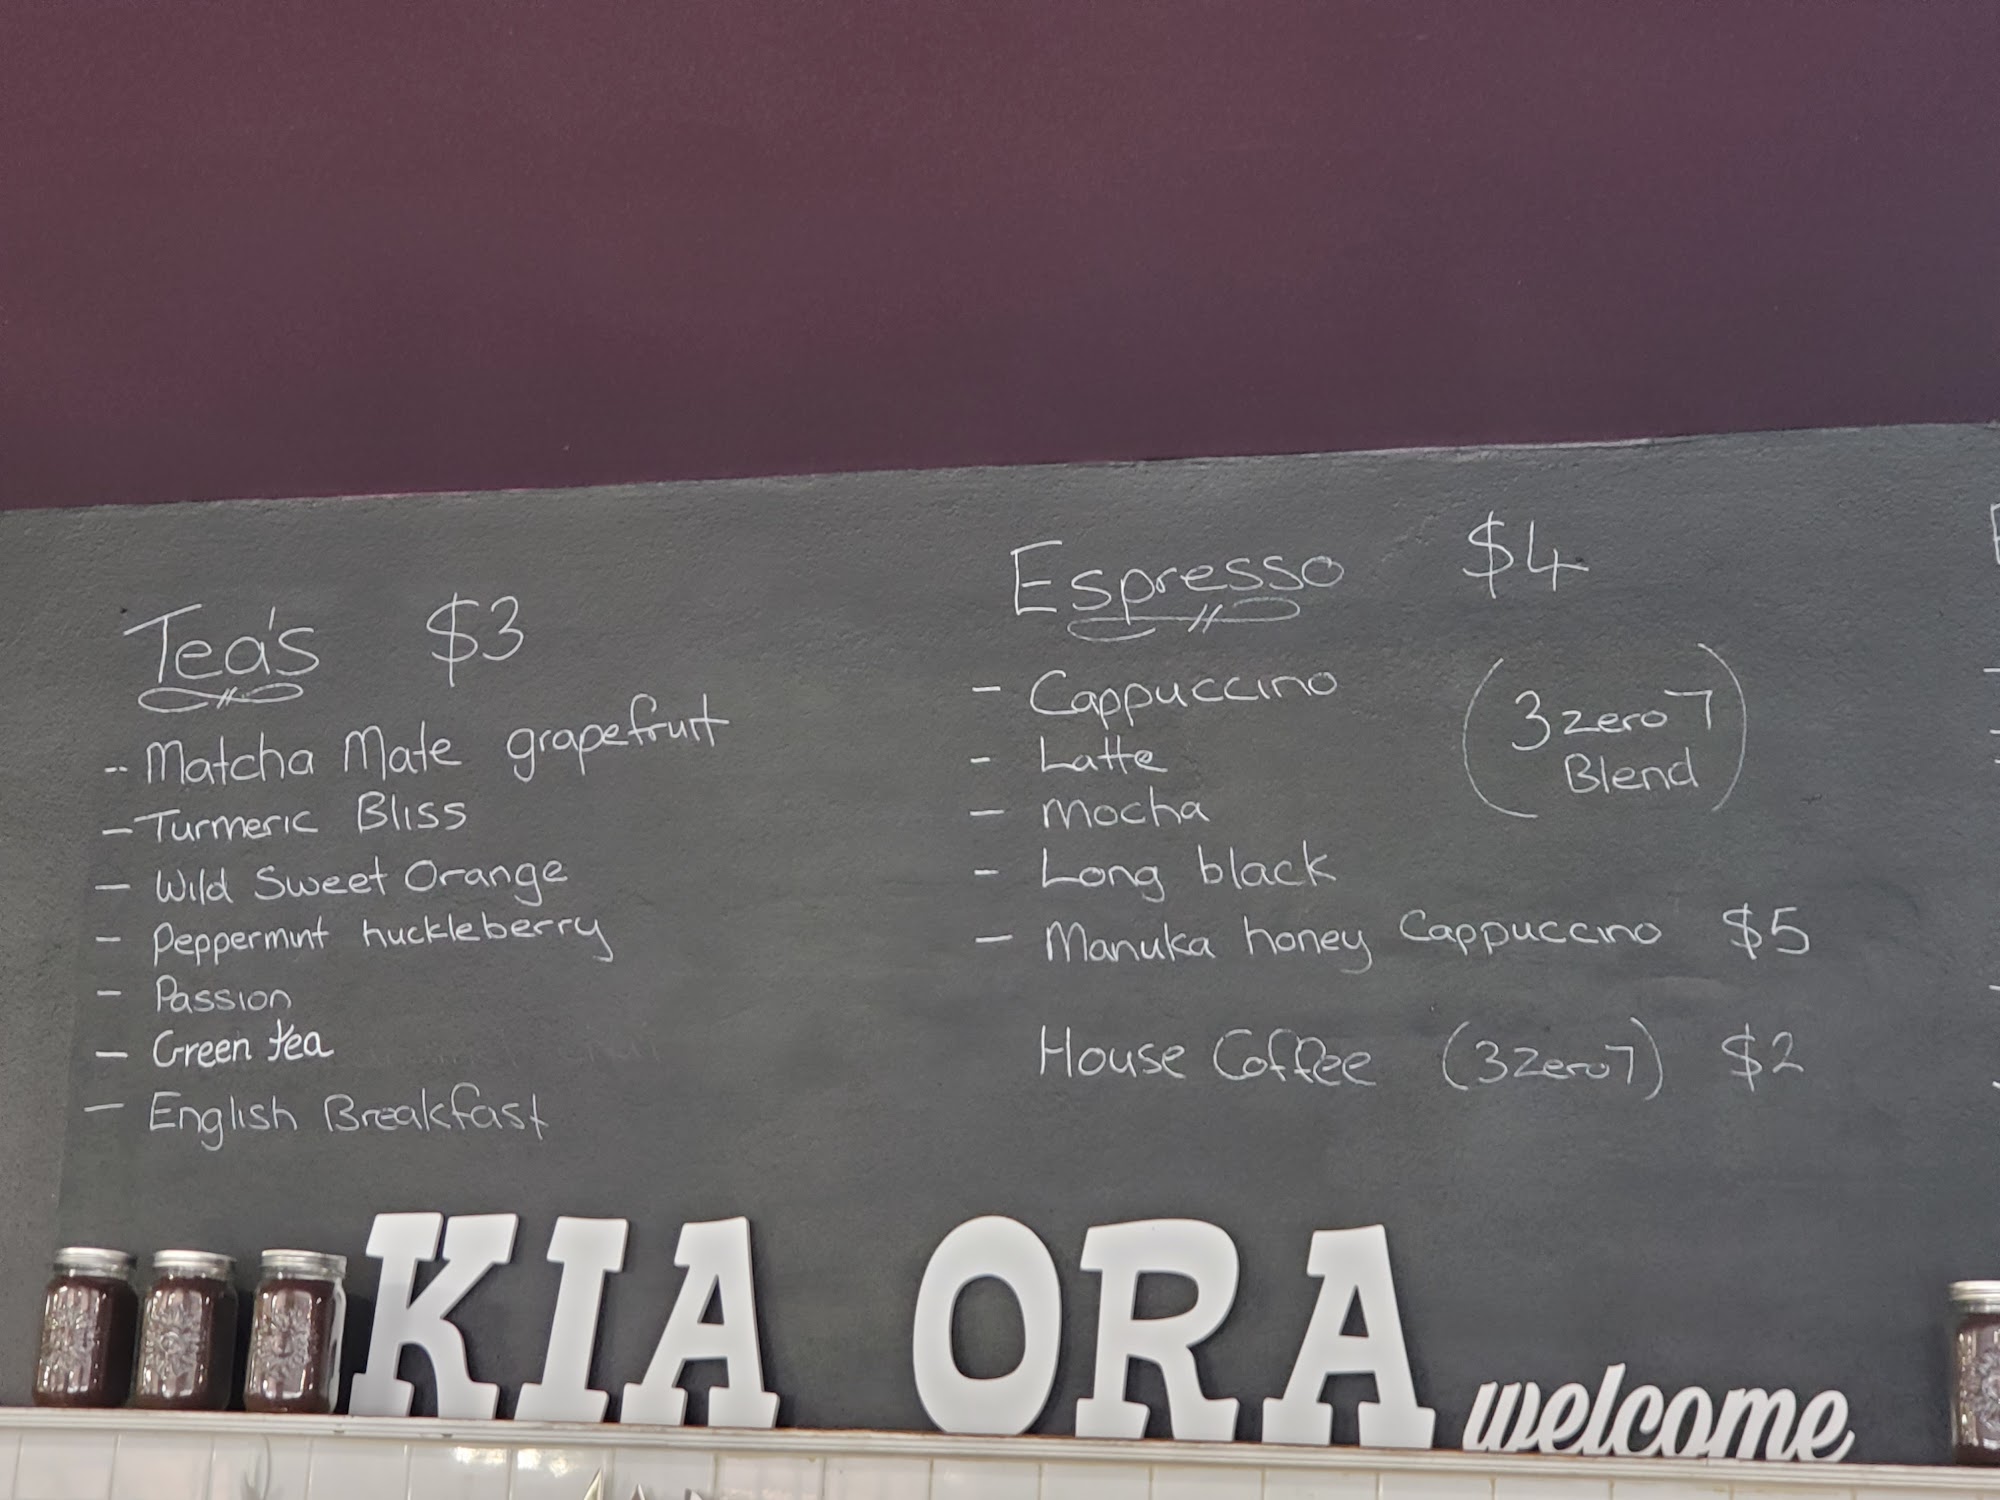 Tea's $3
-- Matcha Mate grapefruit
- Turmeric Bliss
- Wild Sweet Orange
- Peppermint huckleberry
- Passion
- Green tea
- English Breakfast
Espresso $4
- Cappuccino
- Latte
- Mocha
- Long black
- Manuka honey Cappuccino $5
(3zero7
Blend)
House Coffee (3zero7) $2
KIA ORA welcome